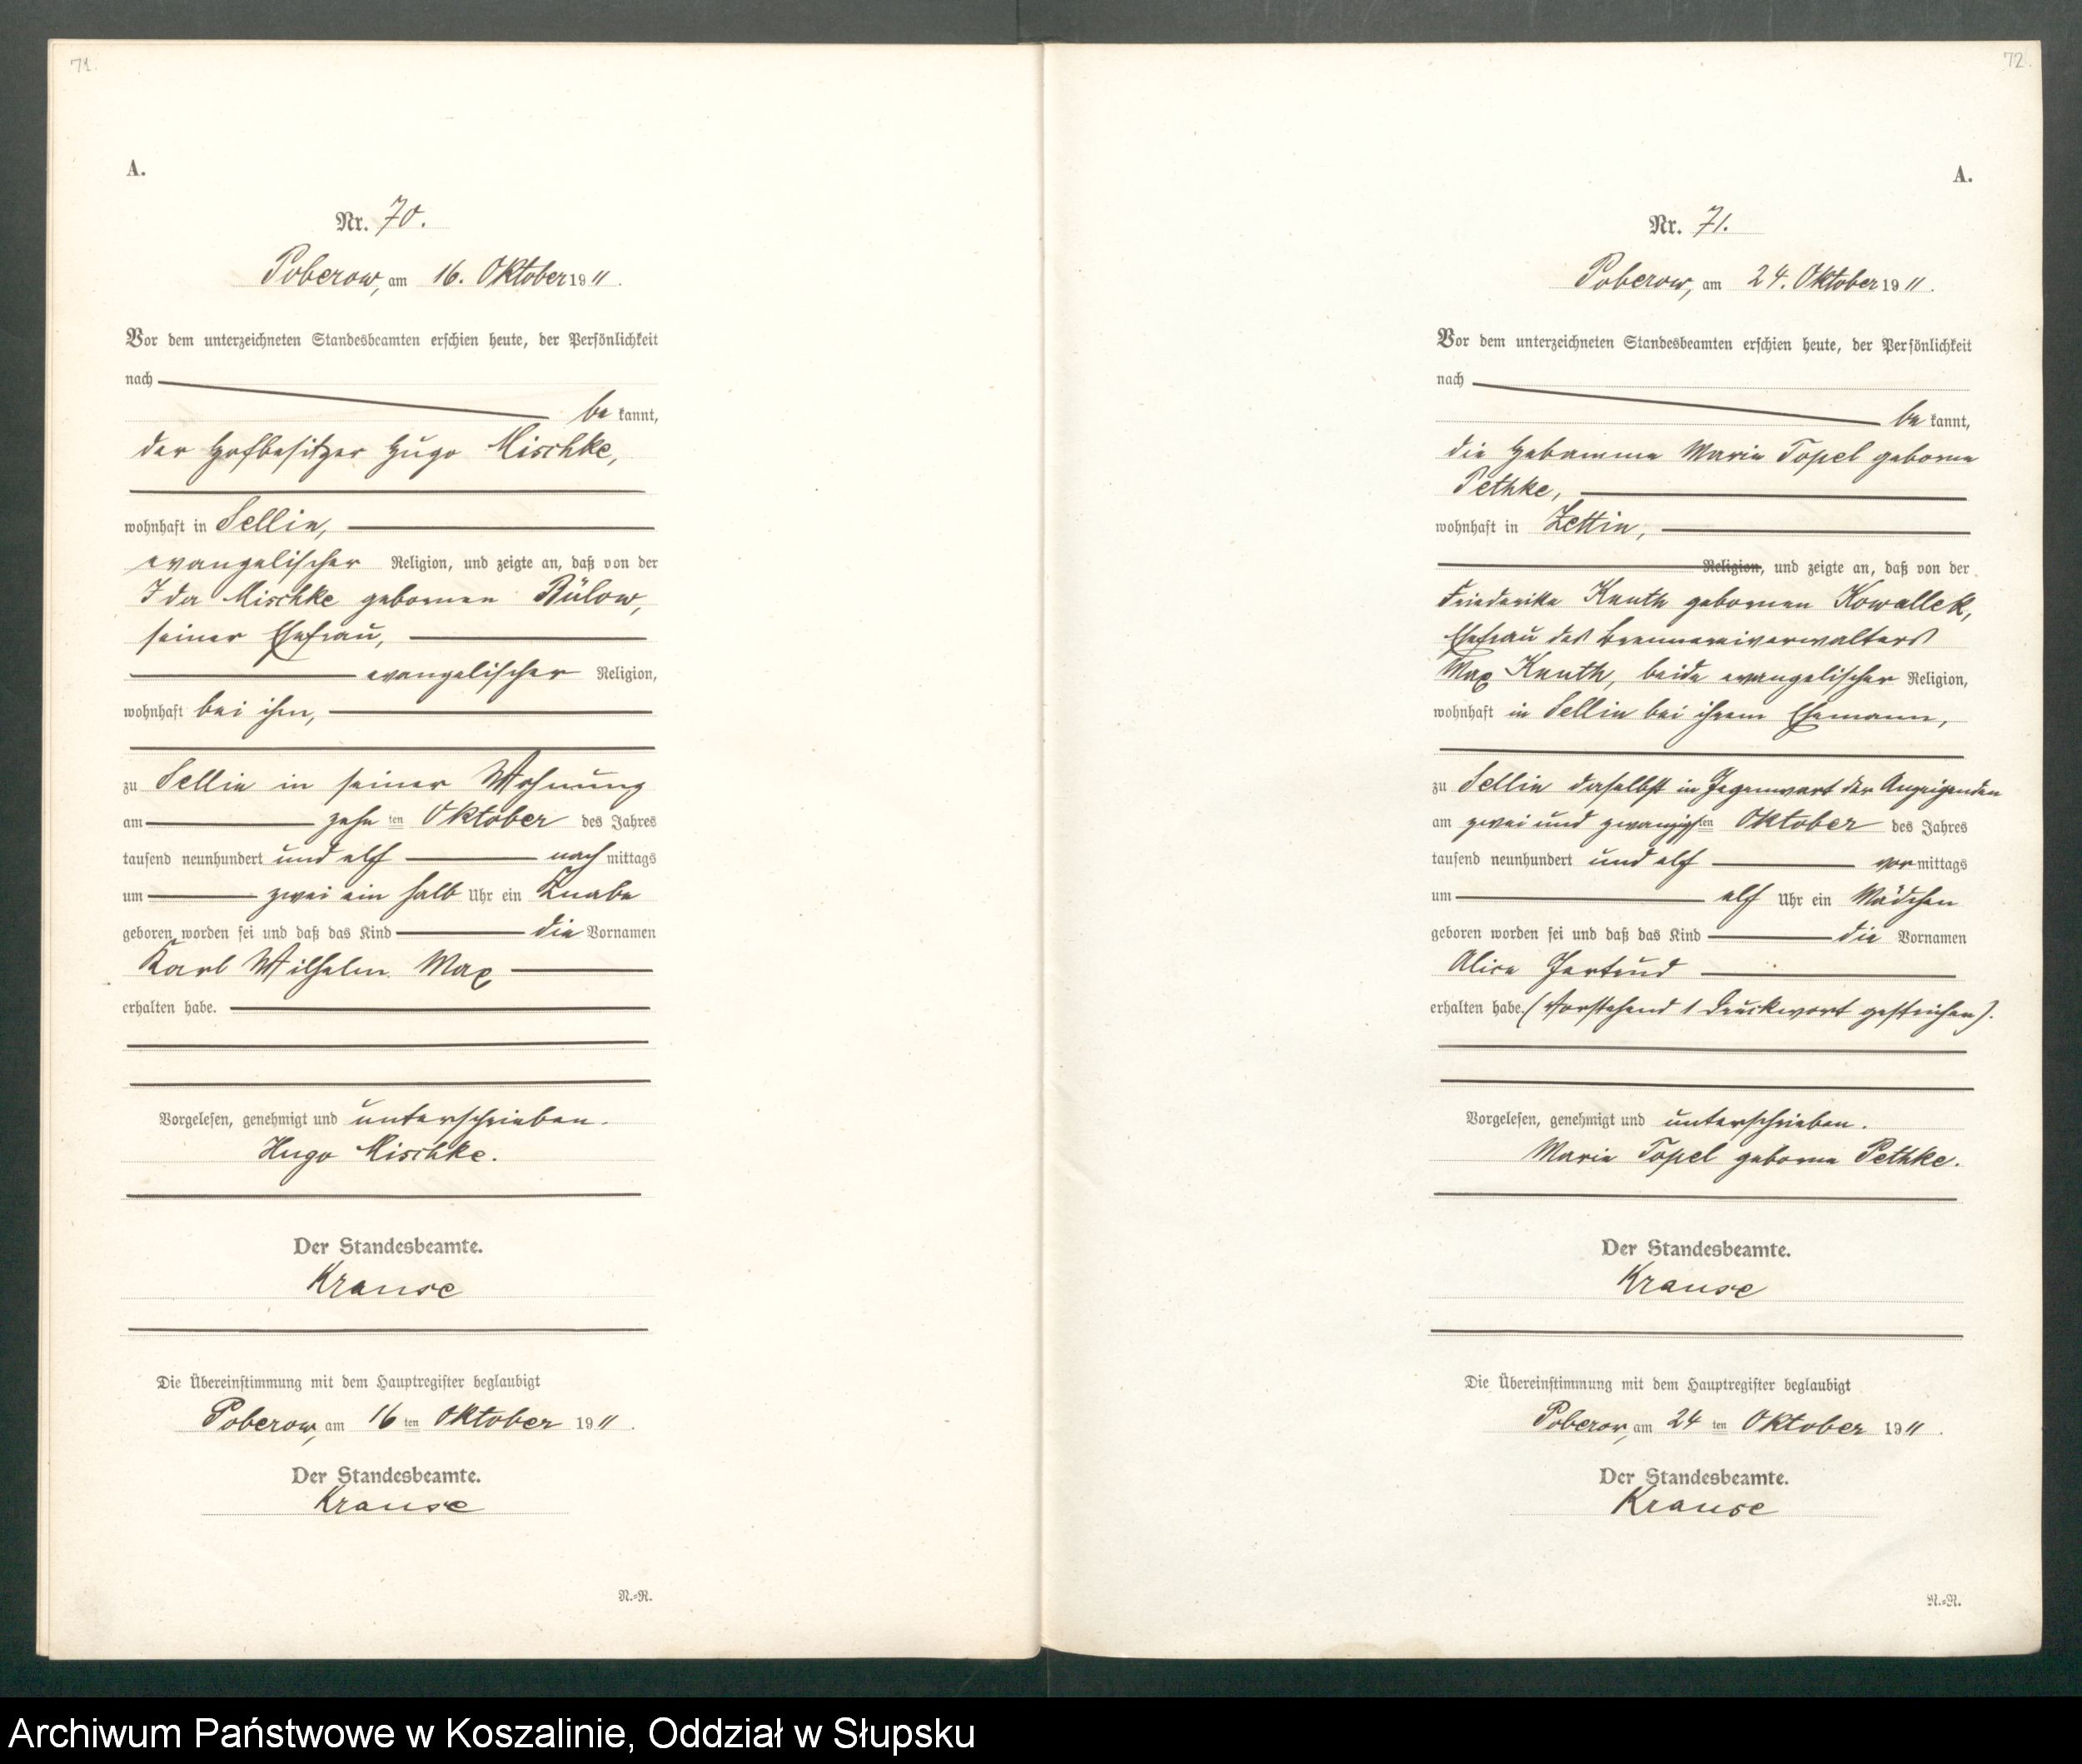 71.
A.
Nr. 70.
Poberow, am 16. Oktober 1911.
Vor dem unterzeichneten Standesbeamten erschien heute, der Persönlichkeit
nach
be kannt,
der Hofbesitzer Hugo Mischke,
wohnhaft in Sellin,
evangelischer Religion, und zeigte an, daß von der
Ida Mischke gebornen Bülow,
seiner Ehefrau,
evangelischer Religion,
wohnhaft bei ihm,
zu Sellin in seiner Wohnung
am zehn ten Oktober des Jahres
tausend neunhundert und elf nach mittags
um zwei ein halb Uhr ein Knabe
geboren worden sei und daß das Kind die Vornamen
Karl Wilhelm Max
erhalten habe.
Vorgelesen, genehmigt und unterschrieben.
Hugo Mischke.
Der Standesbeamte.
Krause
Die Übereinstimmung mit dem Hauptregister beglaubigt
Poberow, am 16 ten Oktober 1911.
Der Standesbeamte.
Krause
N.=R.
72.
A.
Nr. 71.
Poberow, am 24. Oktober 1911.
Vor dem unterzeichneten Standesbeamten erschien heute, der Persönlichkeit
nach
be kannt,
die Hebamme Marie Topel geborne
Pethke,
wohnhaft in Zettin,
Religion, und zeigte an, daß von der
Friederike Knuth gebornen Kowallek,
Ehefrau des Brennereiverwalters
Max Knuth, beide evangelischer Religion,
wohnhaft in Sellin bei ihrem Ehemann,
zu Sellin daselbst in Gegenwart der Anzeigenden
am zwei und zwanzigsten Oktober des Jahres
tausend neunhundert und elf vor mittags
um elf Uhr ein Mädchen
geboren worden sei und daß das Kind die Vornamen
Alice Gertrud
erhalten habe. (Vorstehend 1 Druckwort gestrichen).
Vorgelesen, genehmigt und unterschrieben.
Marie Topel geborne Pethke.
Der Standesbeamte.
Krause
Die Übereinstimmung mit dem Hauptregister beglaubigt
Poberow, am 24 ten Oktober 1911.
Der Standesbeamte.
Krause
N.=R.
Archiwum Państwowe w Koszalinie, Oddział w Słupsku